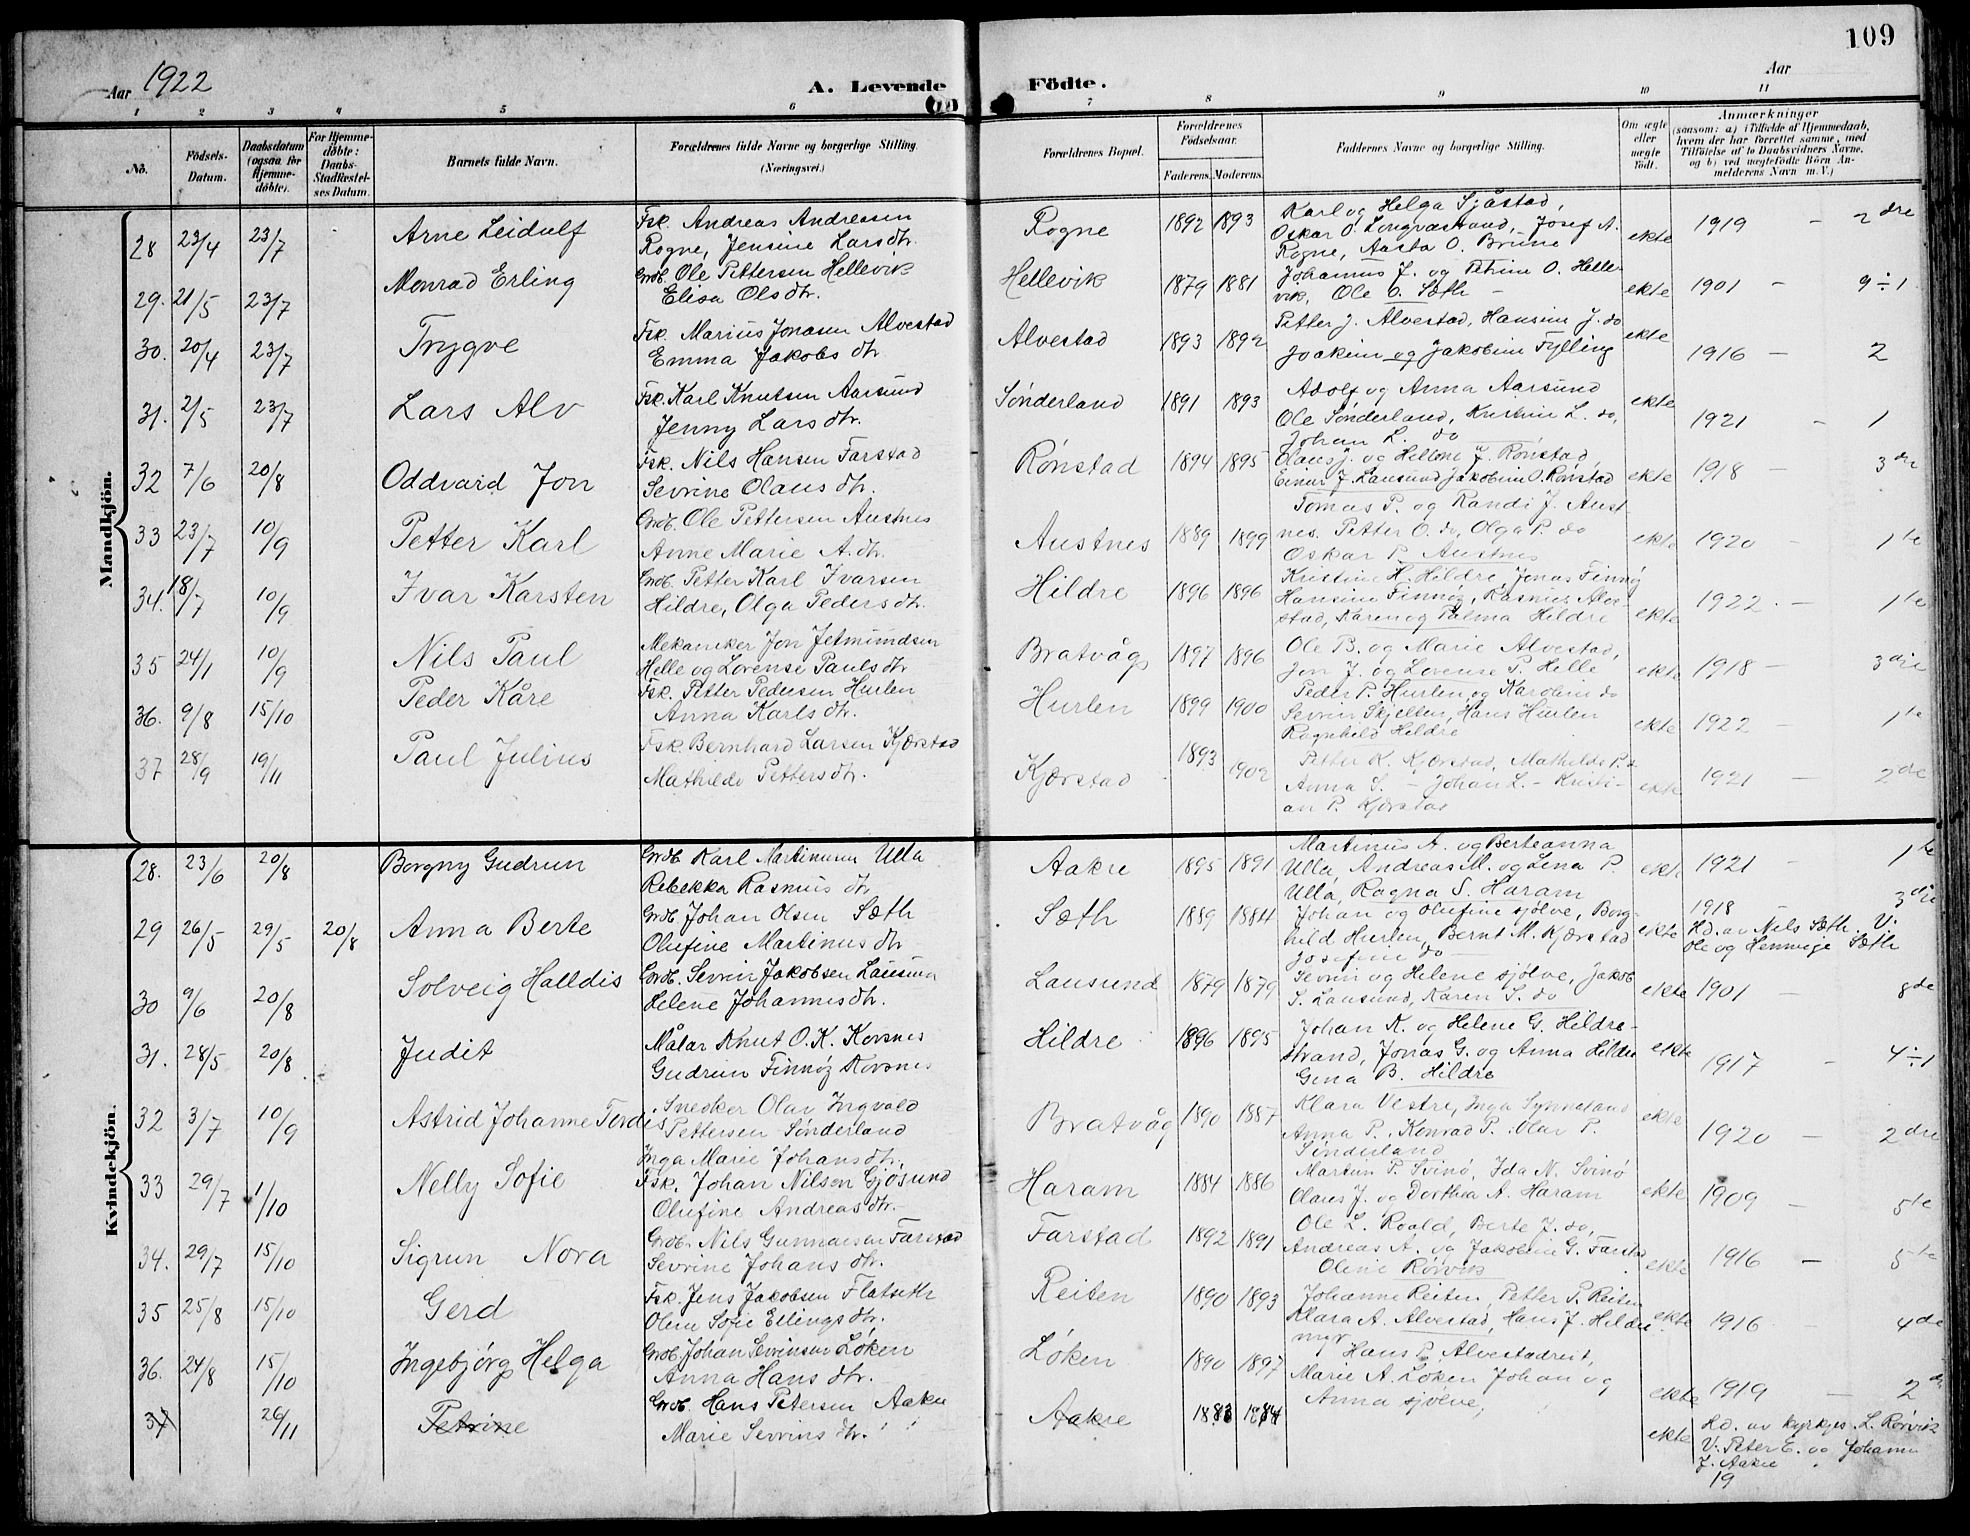 109
Aar 1922
A. Levende Födte.
Aar
1 2 3 4 5 6 7 8 9 10 11
No.
Födsels-Datum.
Daabsdatum (ogsaa for Hjemme-döbte).
For Hjemme-döbte: Daabs-Stadfæstel-ses Datum.
Barnets fulde Navn.
Forældrenes fulde Navne og borgerlige Stilling. (Næringsvei.)
Forældrenes Bopæl.
Forældrenes Födselsaar.
Faderens. Moderens.
Faddernes Navne og borgerlige Stilling.
Om ægte eller uægte födt.
Anmærkninger
(saasom: a) i Tilfælde af Hjemmedaab, hvem der har forrettet samme, med Tilföielse af to Daabsvidners Navne, og b) ved uægtefödte Börn An-melderens Navn m. V.)
Mandkjön.
28 23/4 23/7 Arne Leidulf Fsk. Andreas Andreasen Rogne, Jensine Larsdtr. Rogne 1892 1893 Karl og Helga Sjåstad, Oskar O. Longvastrand, Josef A. Rogne, Aasta O. Brune ekte 1919 - 2dre
29. 21/5 23/7 Monrad Erling Grdb. Ole Pettersen Hellevik Elisa Olsdtr. Hellevik 1879 1881 Johannes J. og Petrine O. Hellevik, Ole O. Sæth - ekte 1901 - 9÷1
30. 20/4 23/7 Trygve Fsk. Marius Jonasen Alvestad Emma Jakobsdtr. Alvestad 1893 1892 Petter J. Alvestad, Hansine J. do Joakim og Jakobine Fylling ekte 1916 - 2
31. 2/5 23/7 Lars Alv Fsk. Karl Knutsen Aarsund Jenny Larsdtr. Sønderland 1891 1893 Adolf og Anna Aarsund Ole Sønderland, Kristine L. do, Johan L. do ekte 1921 - 1
32 7/6 20/8 Oddvard Jon Fsk. Nils Hansen Farstad Sevrine Olausdtr. Rønstad 1894 1895 Olaus J. og Hellene J. Rønstad, Einar J. Lausund Jakobine O. Rønstad ekte 1918 - 3dre
33 23/7 10/9 Petter Karl Grdb. Ole Pettersen Austnes Anne Marie A. dtr. Austnes 1889 1899 Tomas P. og Randi J. Austnes. Petter O. do, Olga P. do Oskar P. Austnes ekte 1920 - 1te
34. 18/7 10/9 Ivar Karsten Grdb. Petter Karl Ivarsen Hildre, Olga Pedersdtr. Hildre 1896 1896 Kristine H. Hildre, Jonas Finnøy Hansine Finnøy, Rasmus Alvestad, Karen og Palma Hildre ekte 1922. - 1te
35 24/1 10/9 Nils Paul Mekaniker Jon Jetmundsen Helle og Lovense Paulsdtr Bratvåg 1897 1896 Ole B. og Marie Alvestad, Jon J. og Lovense P. Helle ekte 1918 - 3dje
36. 9/8 15/10 Peder Kåre Fsk. Petter Pedersen Hurlen Anna Karlsdtr. Hurlen 1899 1900 Peder P. Hurlen og Karoline do Sevrin Skjelten, Hans Hurlen Ragnhild Hildre ekte 1922 - 1te
37 28/9 19/11 Paul Julius Fsk. Bernhard Larsen Kjærstad Mathilde Pettersdtr. Kjærstad 1893 1902 Petter K. Kjærstad, Mathilde P. Anna S. - Johan L. - Kristian P. Kjærstad ekte 1921 - 2de
Kvindekjön.
28. 23/6 20/8 Borgny Gudrun Grdb. Karl Martinusen Ulla Rebekka Rasmusdtr Aakre 1895 1891 Martinus A. og Berteanna Ulla, Andreas M. og Lena P. Ulla, Ragna S. Haram ekte 1921 - 1te
29 26/5 29/5 20/8 Anna Berte Grdb Johan Olsen Sæth Olufine Martinusdtr Sæth 1889 1884 Johan og Olufine sjølve, Borghild Hurlen, Bernt M. Kjærstad Josefine do ekte 1918 - 3dje Hd. av Nils Sæth. V: Ole og Sæth
30 9/6 20/8 Solveig Halldis Grdb. Sevrin Jakobsen Lausund Helene Johannesdtr. Lausund 1879 1879 Sevrin og Helene sjølve, Jakob S. Lausund, Karen S. do ekte 1901 - 8de
31. 28/5 20/8 Judit Målar Knut O. K. Korsnes Gudrun Finnøy Korsnes Hildre 1896 1895 Johan K. og Helene G. Hildrestrand, Jonas G. og Anna Hildre Gina B. Hildre ekte 1917 - 4÷1
32 3/7 10/9 Astrid Johanne Tordis Snedker Olav Ingvald Pettersen Sønderland Inga Marie Johansdtr. Bratvåg 1890 1887 Klara Vestre, Inga Synnaland Anna P. Konrad P. Olav P. Sønderland ekte 1920 - 2dre
33 29/7 1/10 Nelly Sofie Fsk. Johan Nilsen Gjøsund Olufine Andreasdtr. Haram 1884 1886 Martin P. Svinø, Ida N. Svinø Olaus J. og Dorthea A. Haram ekte 1909 5te
34. 29/7 15/10 Sigrun Nora Grdb. Nils Gunnarsen Farstad Sevrine Johansdtr. Farstad 1892 1891 Ole L. Roald, Berte J. do, Andreas A. og Jakobine G. Farstad Oline Rørvik ekte 1916 - 5te
35 25/8 15/10 Gerd Fsk. Jens Jakobsen Flatseth Oline Sofie Ellingsdtr. Reiten 1890 1893 Johanne Reiten, Petter P. Reiten Klara A. Alvestad, Hans J. Hildremyr ekte 1916 4de
36. 24/8 15/10 Ingebjørg Helga Grdb. Johan Sevrinsen Løken Anna Hansdtr. Løken 1890 1897 Hans P. Alvestadreit, Marie A. Løken Johan og Anna sjølve, ekte 1919 - 2
37 26/11 Petrine Grdb. Hans Petersen Aakre Marie Sevrinsdtr. Aakre 1883 1884 ekte Hd. av kyrkjes. L. Rørvik V: Peter E. og Johanne J. Aakre 19